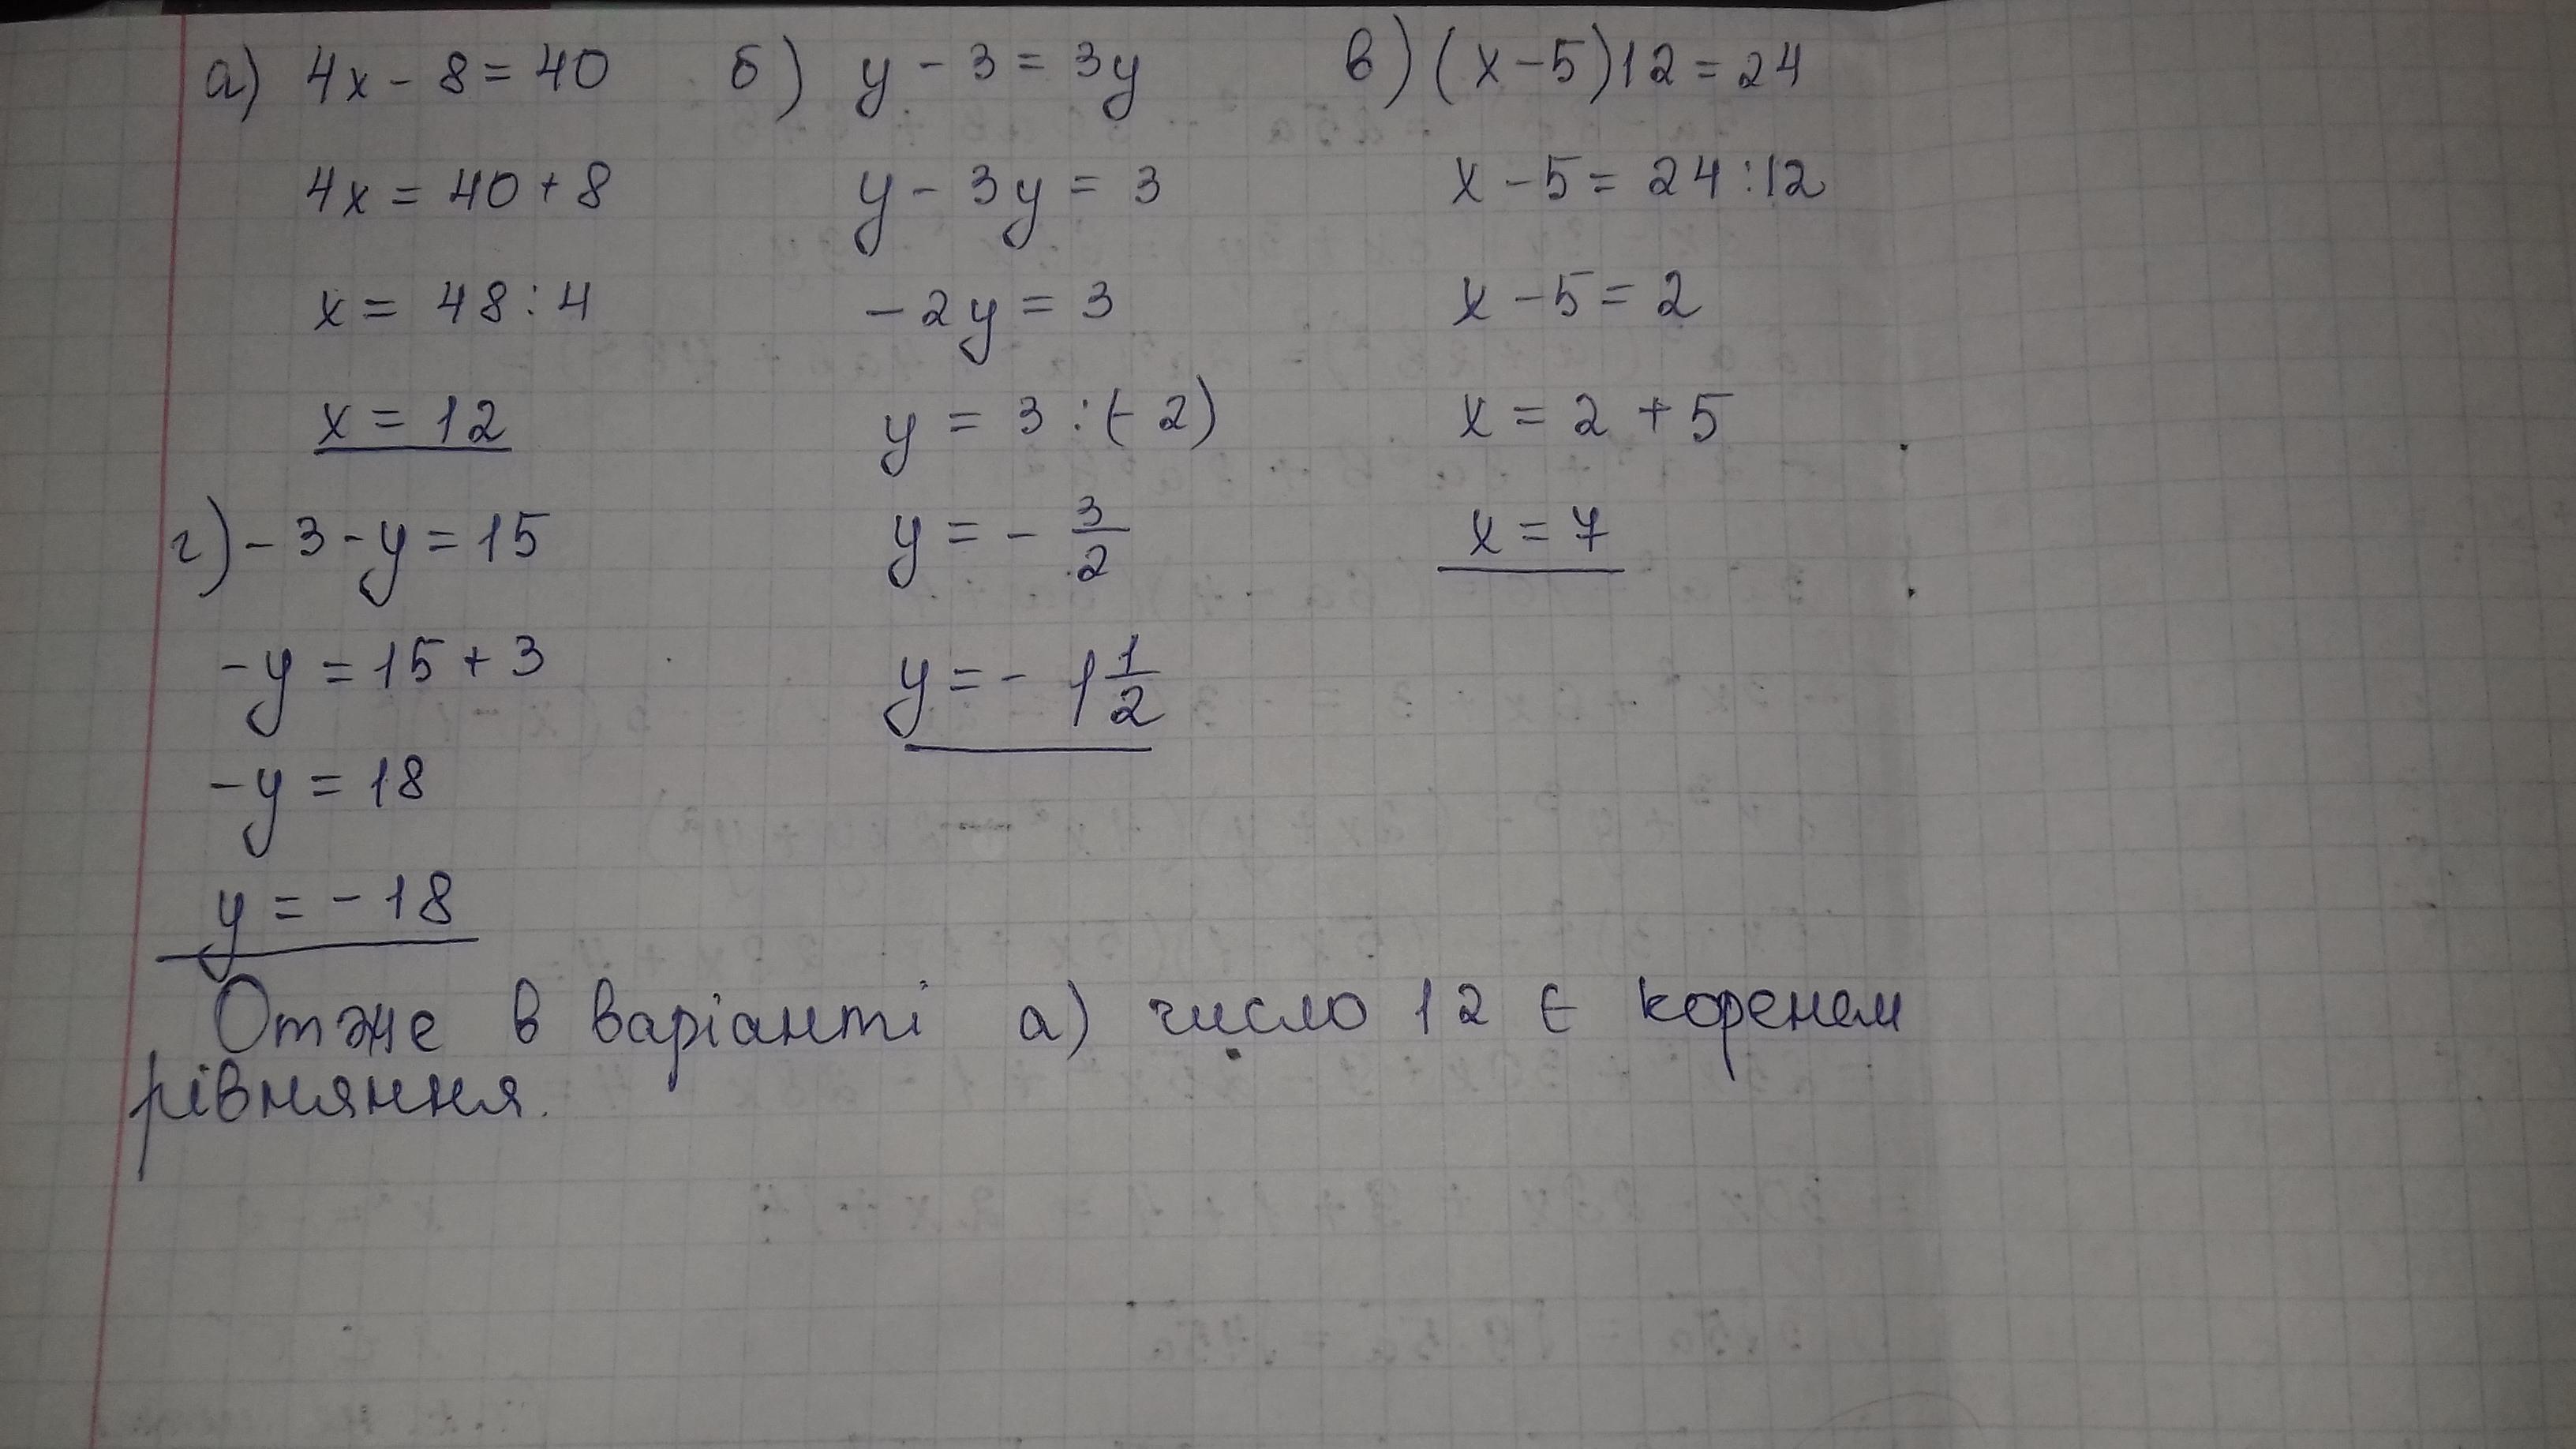 а) 4x - 8 = 40
4x = 40 + 8
x = 48 : 4
x = 12
б) y - 3 = 3y
y - 3y = 3
-2y = 3
y = 3 : (-2)
y = - 3/2
y = - 1 1/2
в) (x - 5) 12 = 24
x - 5 = 24 : 12
x - 5 = 2
x = 2 + 5
x = 7
г) - 3 - y = 15
-y = 15 + 3
-y = 18
y = - 18
Отже в варіанті а) число 12 є коренем
рівняння.